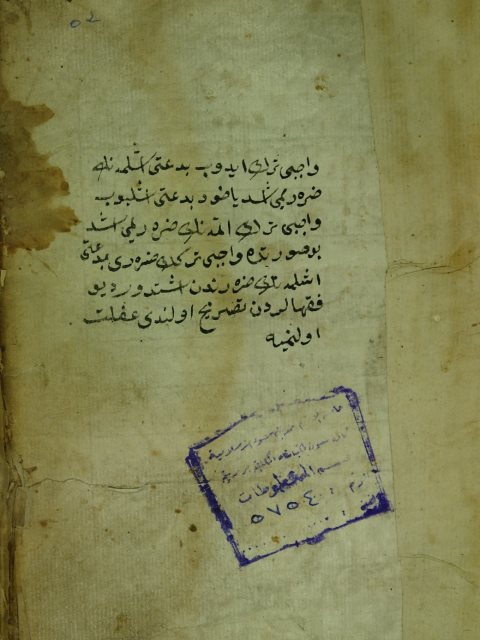 واجبى ترك ايدوب بدعتى اشلمه نك
ضررىمى اشد ياخود بدعتى اشليوب
واجبى ترك اتمه نك ضررىمى اشد
بو صورتده واجبى تركك ضررى بدعتى
اشلمه نك ضررندن اشددر ديو
فقهالردن تصريح اولندى غفلت
اولنميه
قسم المخطوطات
٥٧٥٤